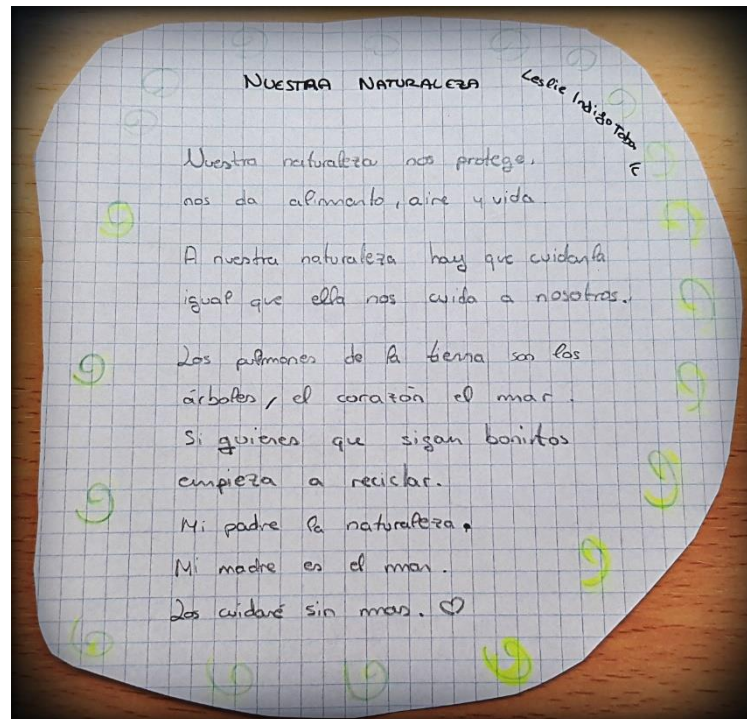 NUESTRA NATURALEZA
Leslie Indigo Toba
Nuestra naturaleza nos protege,
nos da alimento, aire y vida
A nuestra naturaleza hay que cuidarla
igual que ella nos cuida a nosotros.
Los pulmones de la tierra son los
árboles, el corazón el mar.
Si quieres que sigan bonitos
empieza a reciclar.
Mi padre la naturaleza.
Mi madre es el mar.
Los cuidaré sin mas.